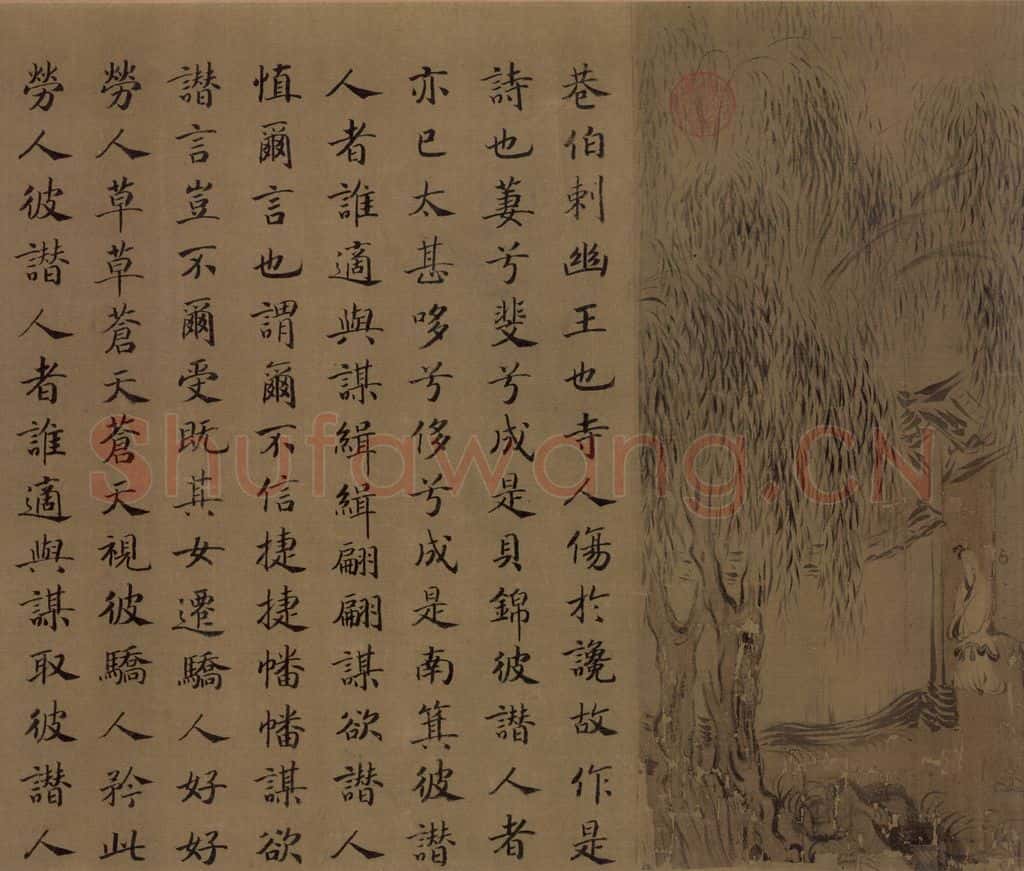 巷伯刺幽王也寺人傷於讒故作是
詩也萋兮斐兮成是貝錦彼譖人者
亦已太甚哆兮侈兮成是南箕彼譖
人者誰適與謀緝緝翩翩謀欲譖人
慎爾言也謂爾不信捷捷幡幡謀欲
譖言豈不爾受既其女遷驕人好好
勞人草草蒼天蒼天視彼驕人矜此
勞人彼譖人者誰適與謀取彼譖人
Shufawang.CN